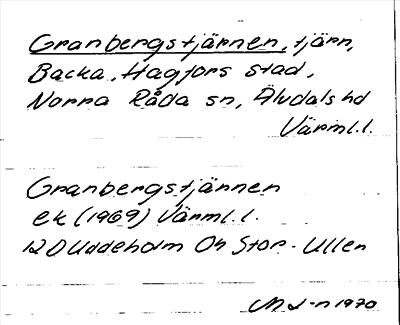 Granbergstjärnen, tjärn,
Backa, Hagfors stad,
Norra Råda sn, Älvdals hd
Värml.l.
Granbergstjännen
ek (1969) Värml.l.
12D Uddeholm On Stor-Ullen
1970